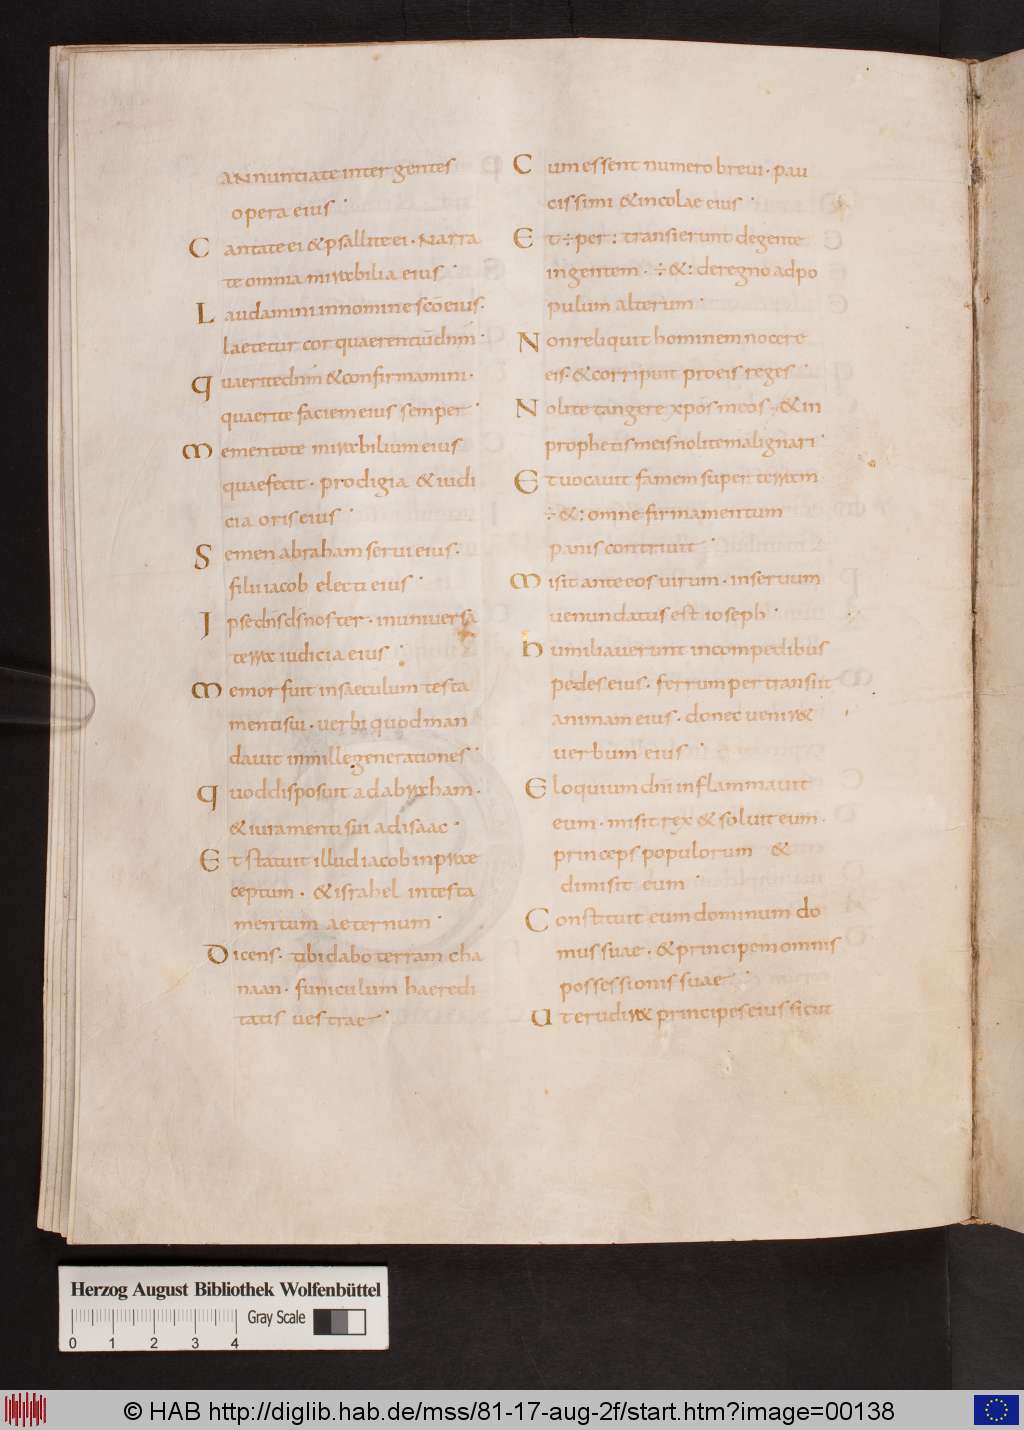 ANnuntiate inter gentes
opera eius ·
Cantate ei & psallite ei · Narra
te omnia mirabilia eius ·
Laudamini in nomine sc̄o eius ·
laetetur cor quaerentiū dn̄m ·
Quaerite dn̄m & confirmamini ·
quaerite faciem eius semper ·
Mementote mirabilium eius
quae fecit · prodigia & iudi
cia oris eius ·
Semen abraham serui eius ·
filii iacob electi eius ·
Ipse dn̄s ds̄ noster · in uniuersa
terra iudicia eius ·
Memor fuit in saeculum testa
menti sui · uerbi quod man
dauit in mille generationes ·
Quod disposuit ad abraham ·
& iuramenti sui ad isaac ·
Et statuit illud iacob in prae
ceptum · & israhel in testa
mentum aeternum ·
Dicens · tibi dabo terram cha
naan · funiculum haeredi
tatis uestrae ·
Cum essent numero breui · pau
cissimi & incolae eius ·
Et ÷ per : transierunt de gente
in gentem · ÷ & : de regno ad po
pulum alterum ·
Non reliquit hominem nocere
eis · & corripuit pro eis reges ·
Nolite tangere xp̄os meos · & in
prophetis meis nolite malignari ·
Et uocauit famem super terram
÷ & : omne firmamentum
panis contriuit ·
Misit ante eos uirum · in seruum
uenundatus est ioseph ·
humiliauerunt in compedibus
pedes eius · ferrum pertransiit
animam eius · donec ueniret
uerbum eius ·
Eloquium dn̄i inflammauit
eum · misit rex & soluit eum ·
princeps populorum &
dimisit eum ·
Constituit eum dominum do
mus suae · & principem omnis
possessionis suae ·
Ut erudiret principes eius sicut
Herzog August Bibliothek Wolfenbüttel
Gray Scale
0 1 2 3 4
© HAB http://diglib.hab.de/mss/81-17-aug-2f/start.htm?image=00138